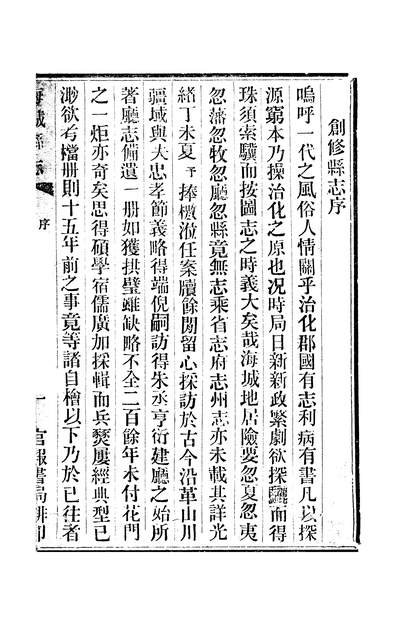 創修縣志序
嗚呼一代之風俗人情關乎治化郡國有志利病有書凡以探
源窮本乃操治化之原也況時局日新新政繁劇欲探驪而得
珠須索驥而按圖志之時義大矣哉海城地居險要忽夏忽夷
忽藩忽牧忽廳忽縣竟無志乘省志府志州志亦未載其詳光
緒丁未夏予捧檄涖任案牘餘閒留心採訪於古今沿革山川
疆域與夫忠孝節義略得端倪嗣訪得朱丞亨衍建廳之始所
著廳志備遺一册如獲拱璧雖缺略不全二百餘年未付花門
之一炬亦奇矣思得碩學宿儒廣加採輯而兵燹屢經典型已
渺欲考檔册則十五年前之事竟等諸自檜以下乃於已往者
海城縣志
序
一
官報書局排印